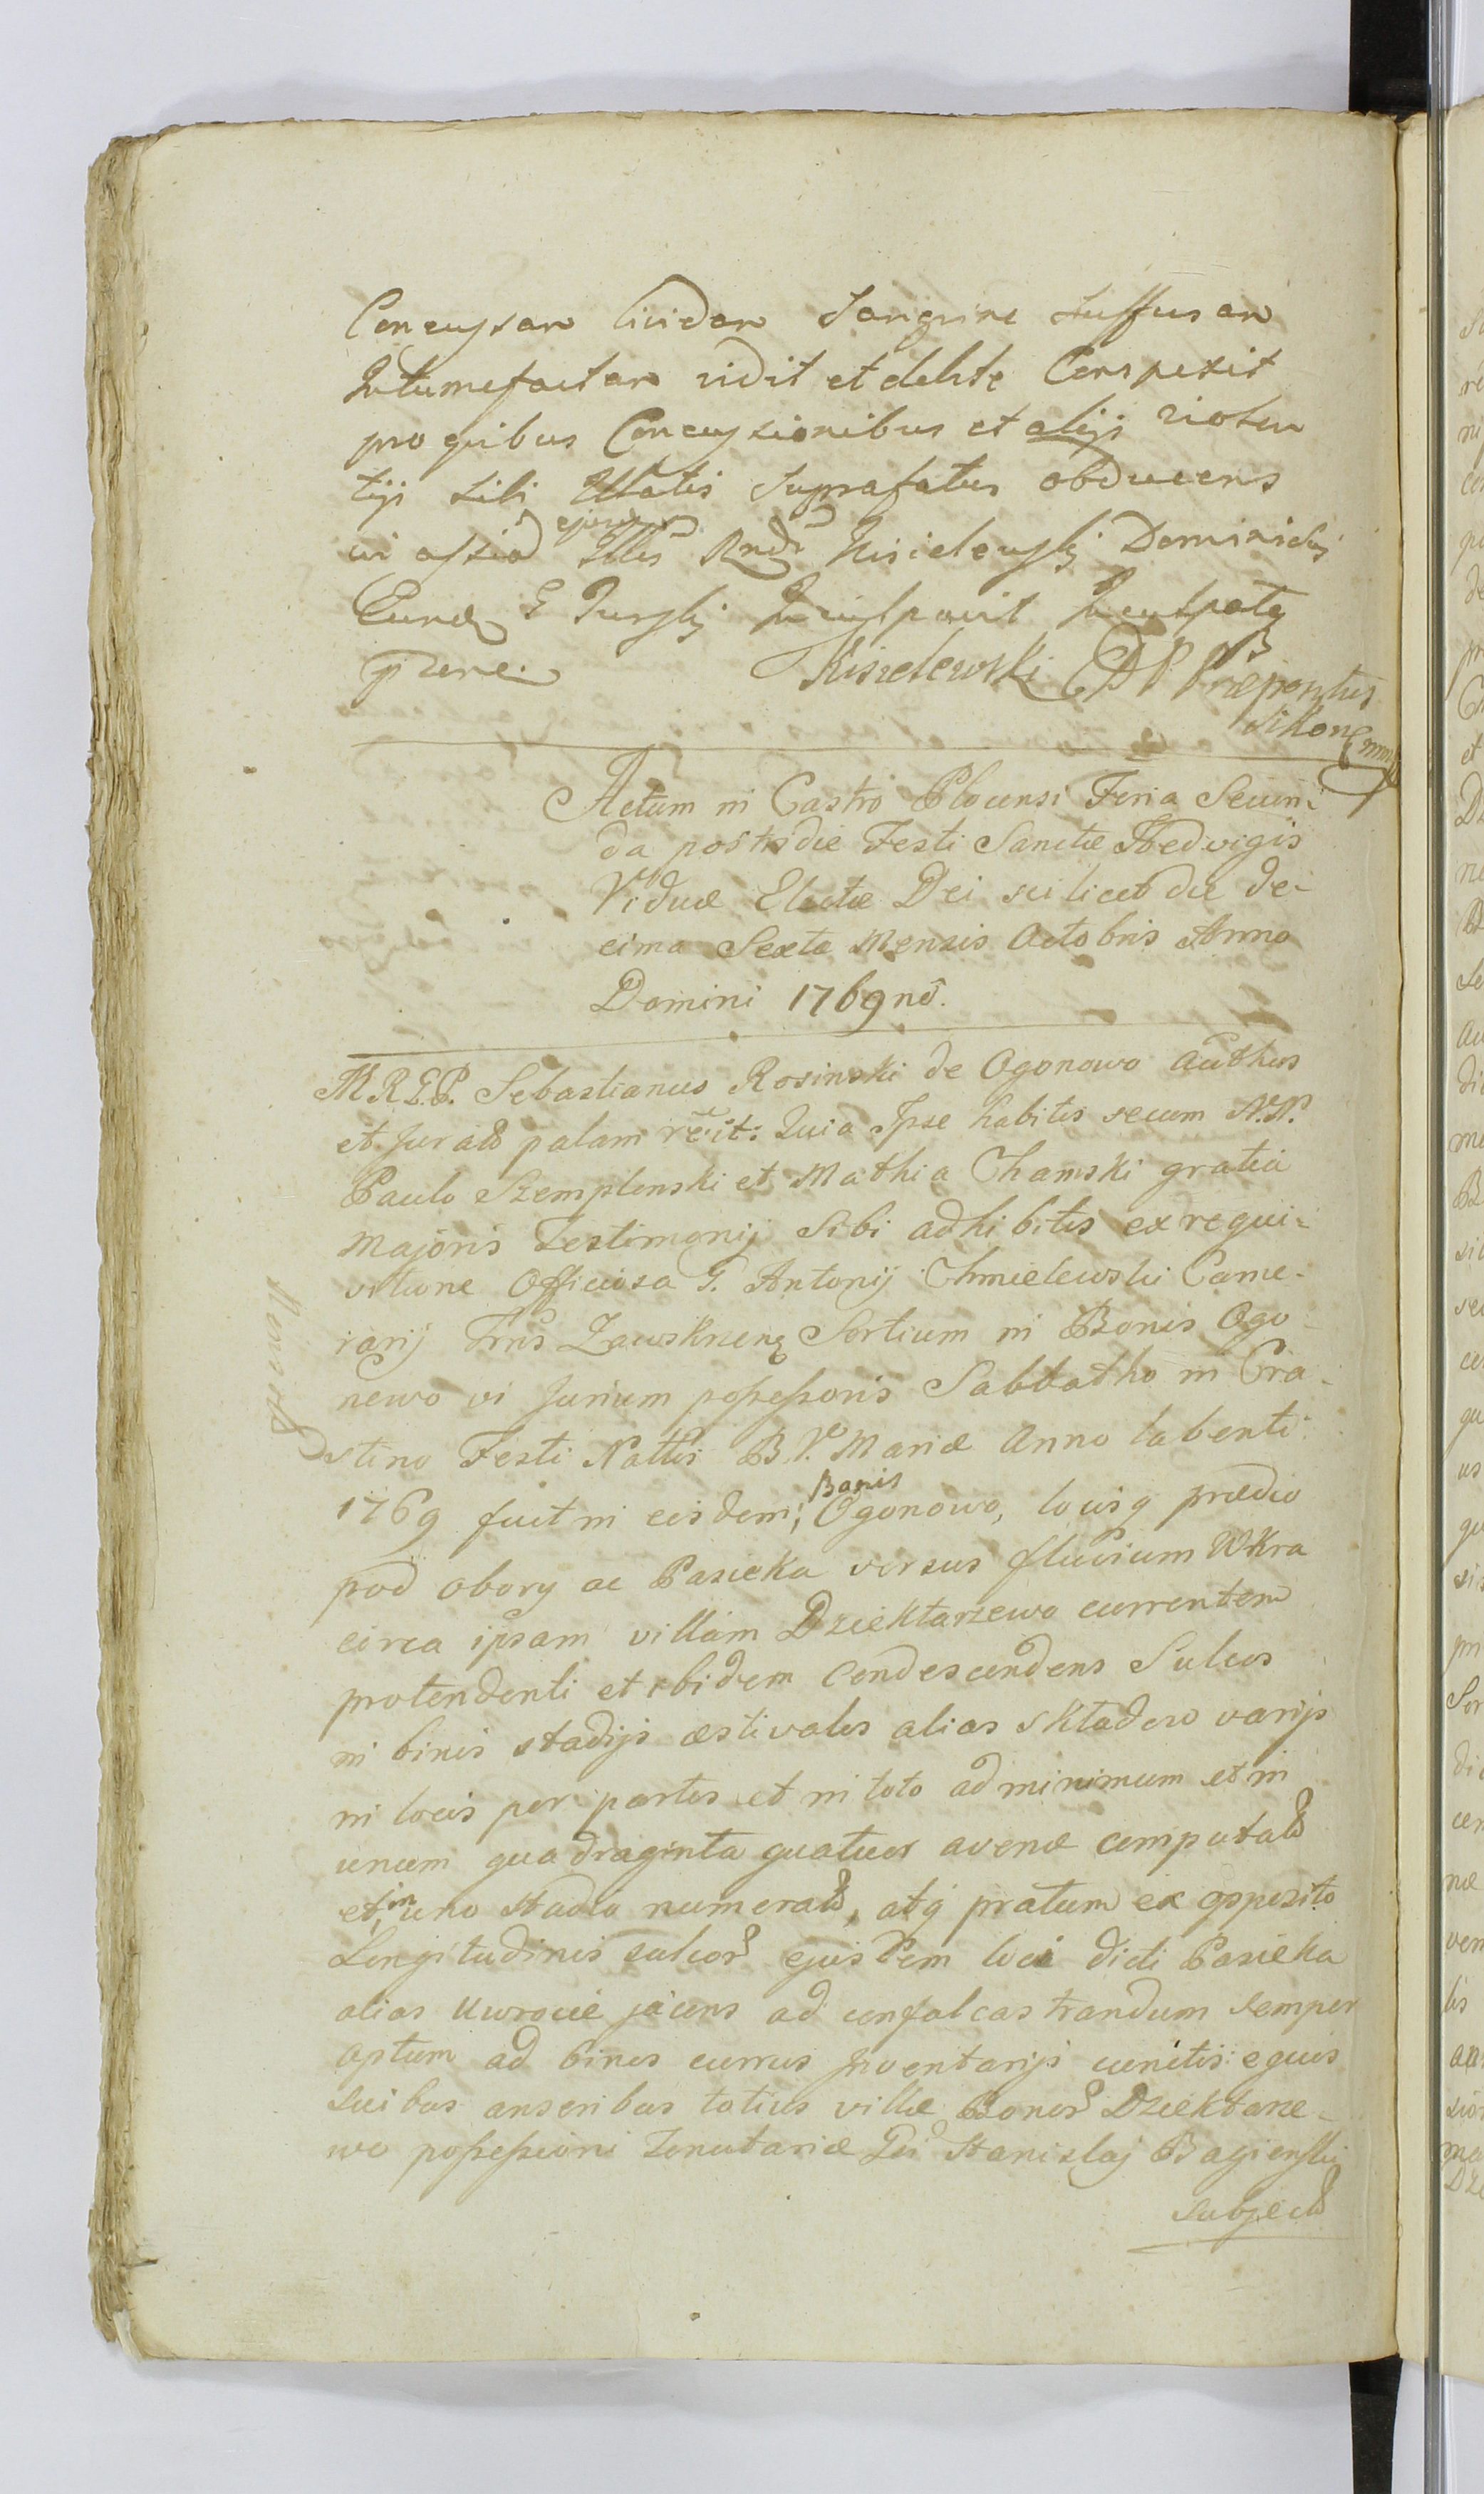 Concussam lividam Sangvine Suffusam
Intumefactam vidit et debite Conspexit
pro quibus Concussionibus et alijs violen
tijs Sibi Illatis Suprafatus obducens
ejusdem
Rndi Kisielewski Dominich
Eund G Turski Inculpavit
gnere. Kisielewski Præpositus
Actum in Castro Plocensi Feria Secun-
da postridie Festi Sanctæ Hedvigis
Viduæ Electæ Dei scilicet die de-
cima Sexta Mensis Octobris Anno
Domini 1769nō.
M.R.E.P. Sebastianus Rosinski de Ogonowo authus
et Jurats palam rēcit: Quia Ipse habitis secum N.N.
Paulo Szemplenski et Mathia Chamski gratia
Majoris Testimonij Sibi adhibitis ex requi-
sitione Officiosa G. Antonij Chmielewski Came-
rarij Trrs Zawskrzeng Sortium in Bonis Ogo-
nowo vi Jurium possessoris Sabbatho in Cra-
stino Festi Nattis B.V. Mariæ Anno labenti
Bonis
1769 fuit in eisdem, Ogonowo, locisq prædio
pod obory ac Pasieka versus fluvium Wkra
circa ipsam villam Dziektarzewo currentem
protendenti et ibidem Condescendens Sulcos
in binis stadijs æstivales alias składow varijs
in locis per partes et in toto ad minimum et in
unum quadraginta quatuor avenæ computats
et in uno stadio numerats, atq pratum ex opposito
Longitudinis sulcor ejusdem loci dicti Pasieka
alias Uwrocie jacens ad confalcastrandum semper
aptum ad binos currus Inventarijs cunctis equis
suibus anseribus totius villæ Bonor Dziektarze-
wo possessioni Tenutariæ Gsi Stanislaj Bagienski
subjects